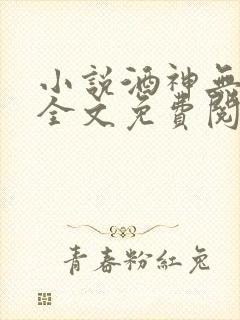 小説酒神無
全文免費閱
青春粉紅兔